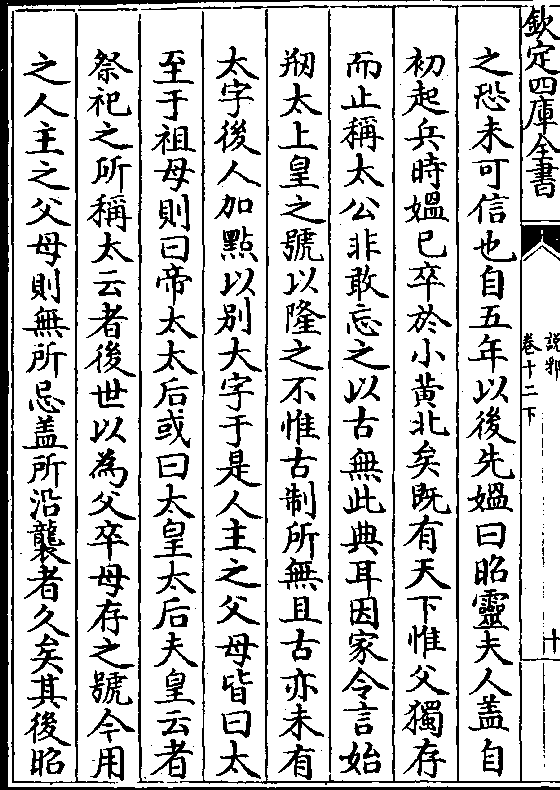 欽定四庫全書
說郛
卷十二下
十
之恐未可信也自五年以後先媼曰昭靈夫人盖自
初起兵時媼已卒於小黄北矣既有天下惟父獨存
而止稱太公非敢忘之以古無此典耳因家令言始
剏太上皇之號以隆之不惟古制所無且古亦未有
太字後人加㸃以别大字于是人主之父母皆曰太
至于祖母則曰帝太太后或曰太皇太后夫皇云者
祭祀之所稱太云者後世以為父卒母存之號今用
之人主之父母則無所忌盖所沿襲者久矣其後昭